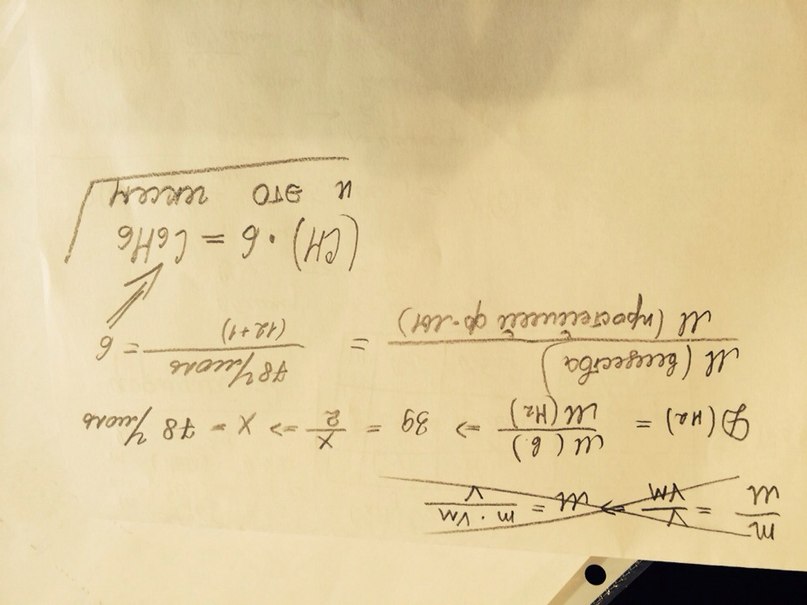 m/M = V/Vм => M = m · Vм / V
D(H2) = M(в.)/M(H2) => 39 = x/2 => x = 78 г/моль
M(вещества) / M(простейшей ф-лы) = 78 г/моль / (12+1) = 6
(CH) · 6 = C6H6
и это